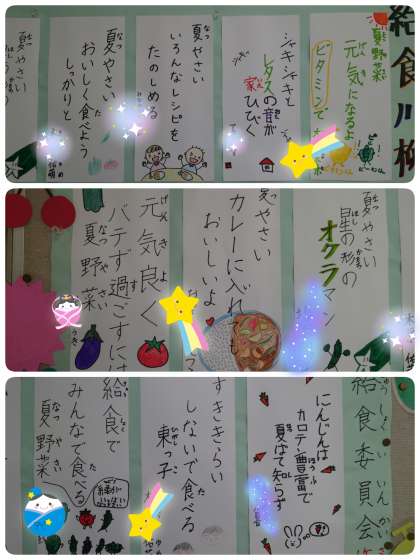 給食川柳
夏野菜
元気になるよ
ビタミンで
シャキシャキと
レタスの音が
家ひびく
夏やさい
いろんなレシピを
たのしめる
夏やさい
おいしく食べよう
しっかりと
夏やさい
夏やさい
星の形の
オクラマン
夏やさい
カレーに入れても
おいしいよ
元気良く
バテず過ごすには
夏野菜
給食委員会
にんじんは
カロテン豊富で
夏ばて知らず
すききらい
しないで食べる
東っ子
給食で
みんなで食べる
夏野菜